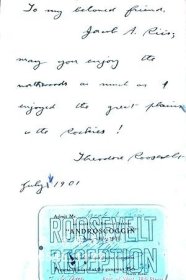 To my beloved friend,
Jacob A. Riis,
may you enjoy the
northwoods as much as I
enjoyed the great plains
& the Rockies!
Theodore Roosevelt
July 1901
Admit Mr.
ANDROSCOGGIN
ROOSEVELT
RECEPTION